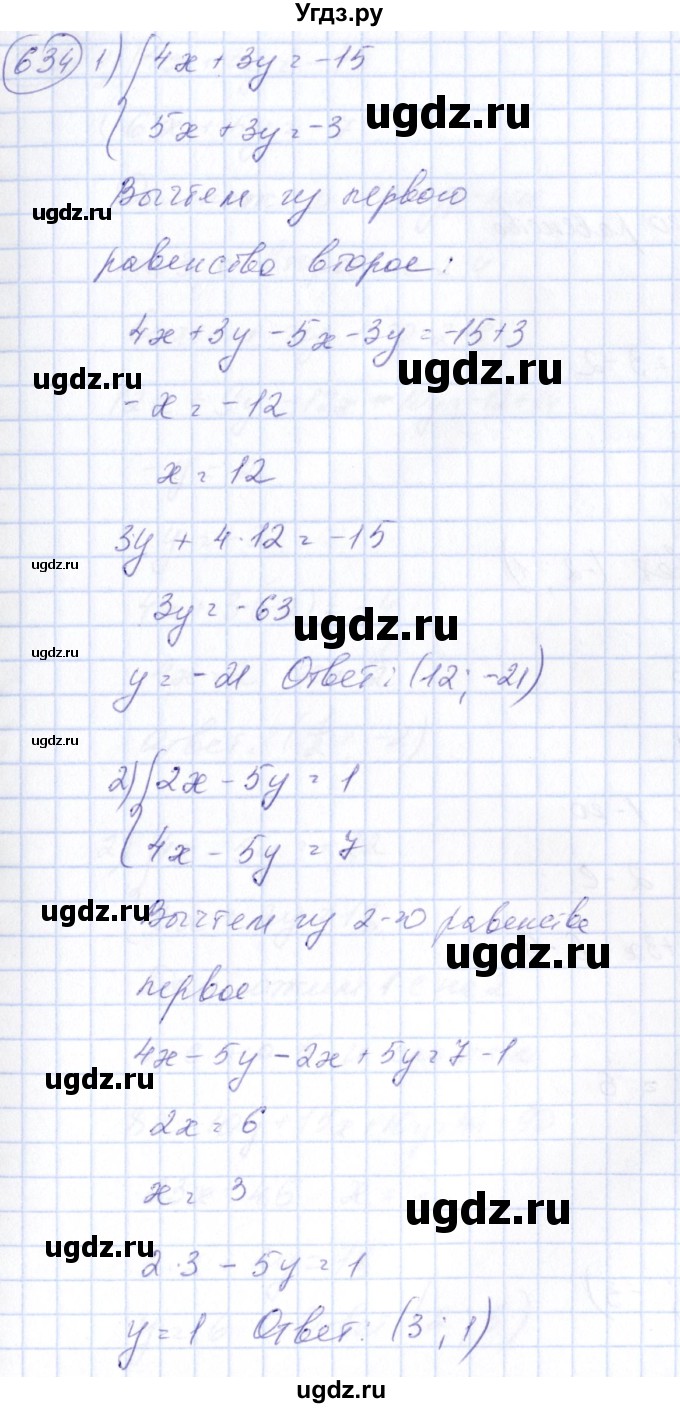 Угдз.ру
634 1) { 4x + 3y = -15
ugdz.ru
5x + 3y = -3
Вычтем из первого
ugdz.ru
равенства второе:
4x + 3y - 5x - 3y = -15+3
ugdz.ru
ugdz.ru
-x = -12
x = 12
3y + 4·12 = -15
ugdz.ru
3y = -63
ugdz.ru
ugdz.ru
y = -21 Ответ: (12; -21)
ugdz.ru
2) { 2x - 5y = 1
4x - 5y = 7
ugdz.ru
Вычтем из 2-го равенства
ugdz.ru
первое
4x - 5y - 2x + 5y = 7 - 1
ugdz.ru
2x = 6
x = 3
ugdz.ru
ugdz.ru
2·3 - 5y = 1
y = 1 Ответ: (3; 1)
ugdz.ru